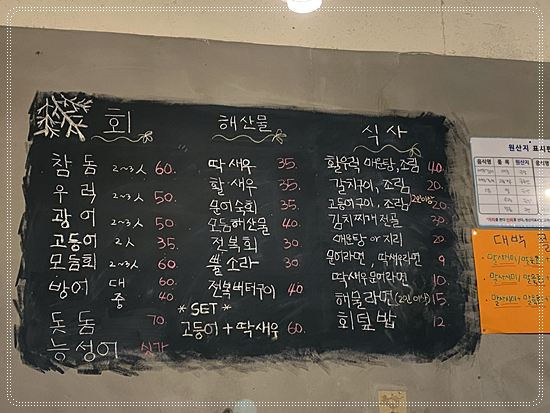 회
참돔 2~3人 60.
우럭 2~3人 50.
광어 2~3人 50
고등어 2人 35.
모듬회 2~3人 60.
방어 대 60.
중 40.
돗돔 70.
능성어 싯가
해산물
딱새우 35.
활새우 35.
문어숙회 35.
모듬해산물 40.
전복회 30
뿔소라 30
전복버터구이 40
* SET *
고등어 + 딱새우 60.
식사
황우럭 매운탕, 조림 40.
갈치구이, 조림 20.
고등어구이, 조림 20.
김치찌개 전골 30
매운탕 or 지리 20
문어라면, 딱새우라면 9
딱새우문어라면 10
해물라면 (2인이상) 15.
회덮밥 12.
원산지 표시판
대박